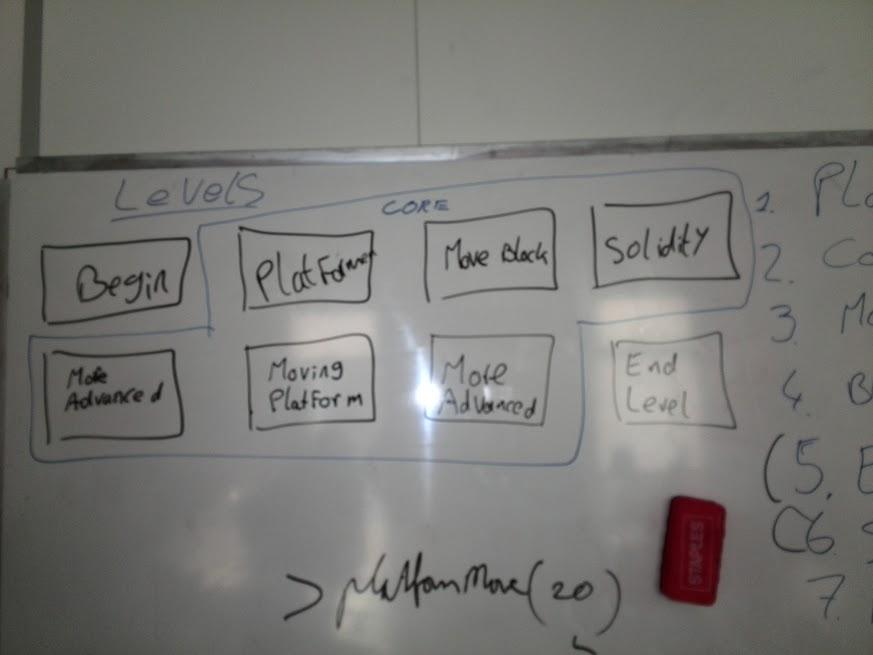 Levels
CORE
Begin
Platformer
Move Block
Solidity
More
Advanced
Moving
Platform
More
Advanced
End
Level
> platformMove(20)
STAPLES
1.
2.
3.
4.
(5.
(6
7.